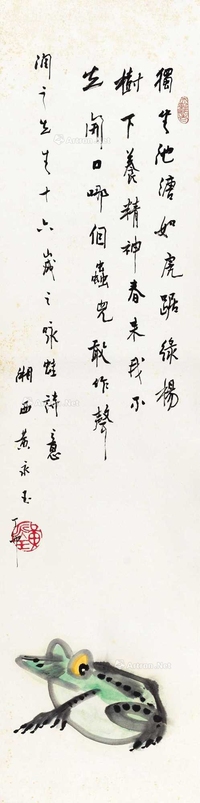 獨坐池塘如虎踞綠楊
樹下養精神春來我不
先開口哪個蟲兒敢作聲
潤之先生十六歲之詠蛙詩意
湘西黃永玉